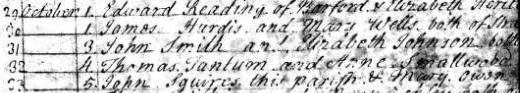 29 October 1. Edward Reading of Harford & Elizabeth
30 1. James Hurdis and Mary Wells both of
31 3. John Smith and Elizabeth Johnson both
32 4. Thomas Tantum and Anne Smallwood
33 5. John Squires this parish & Mary Owen